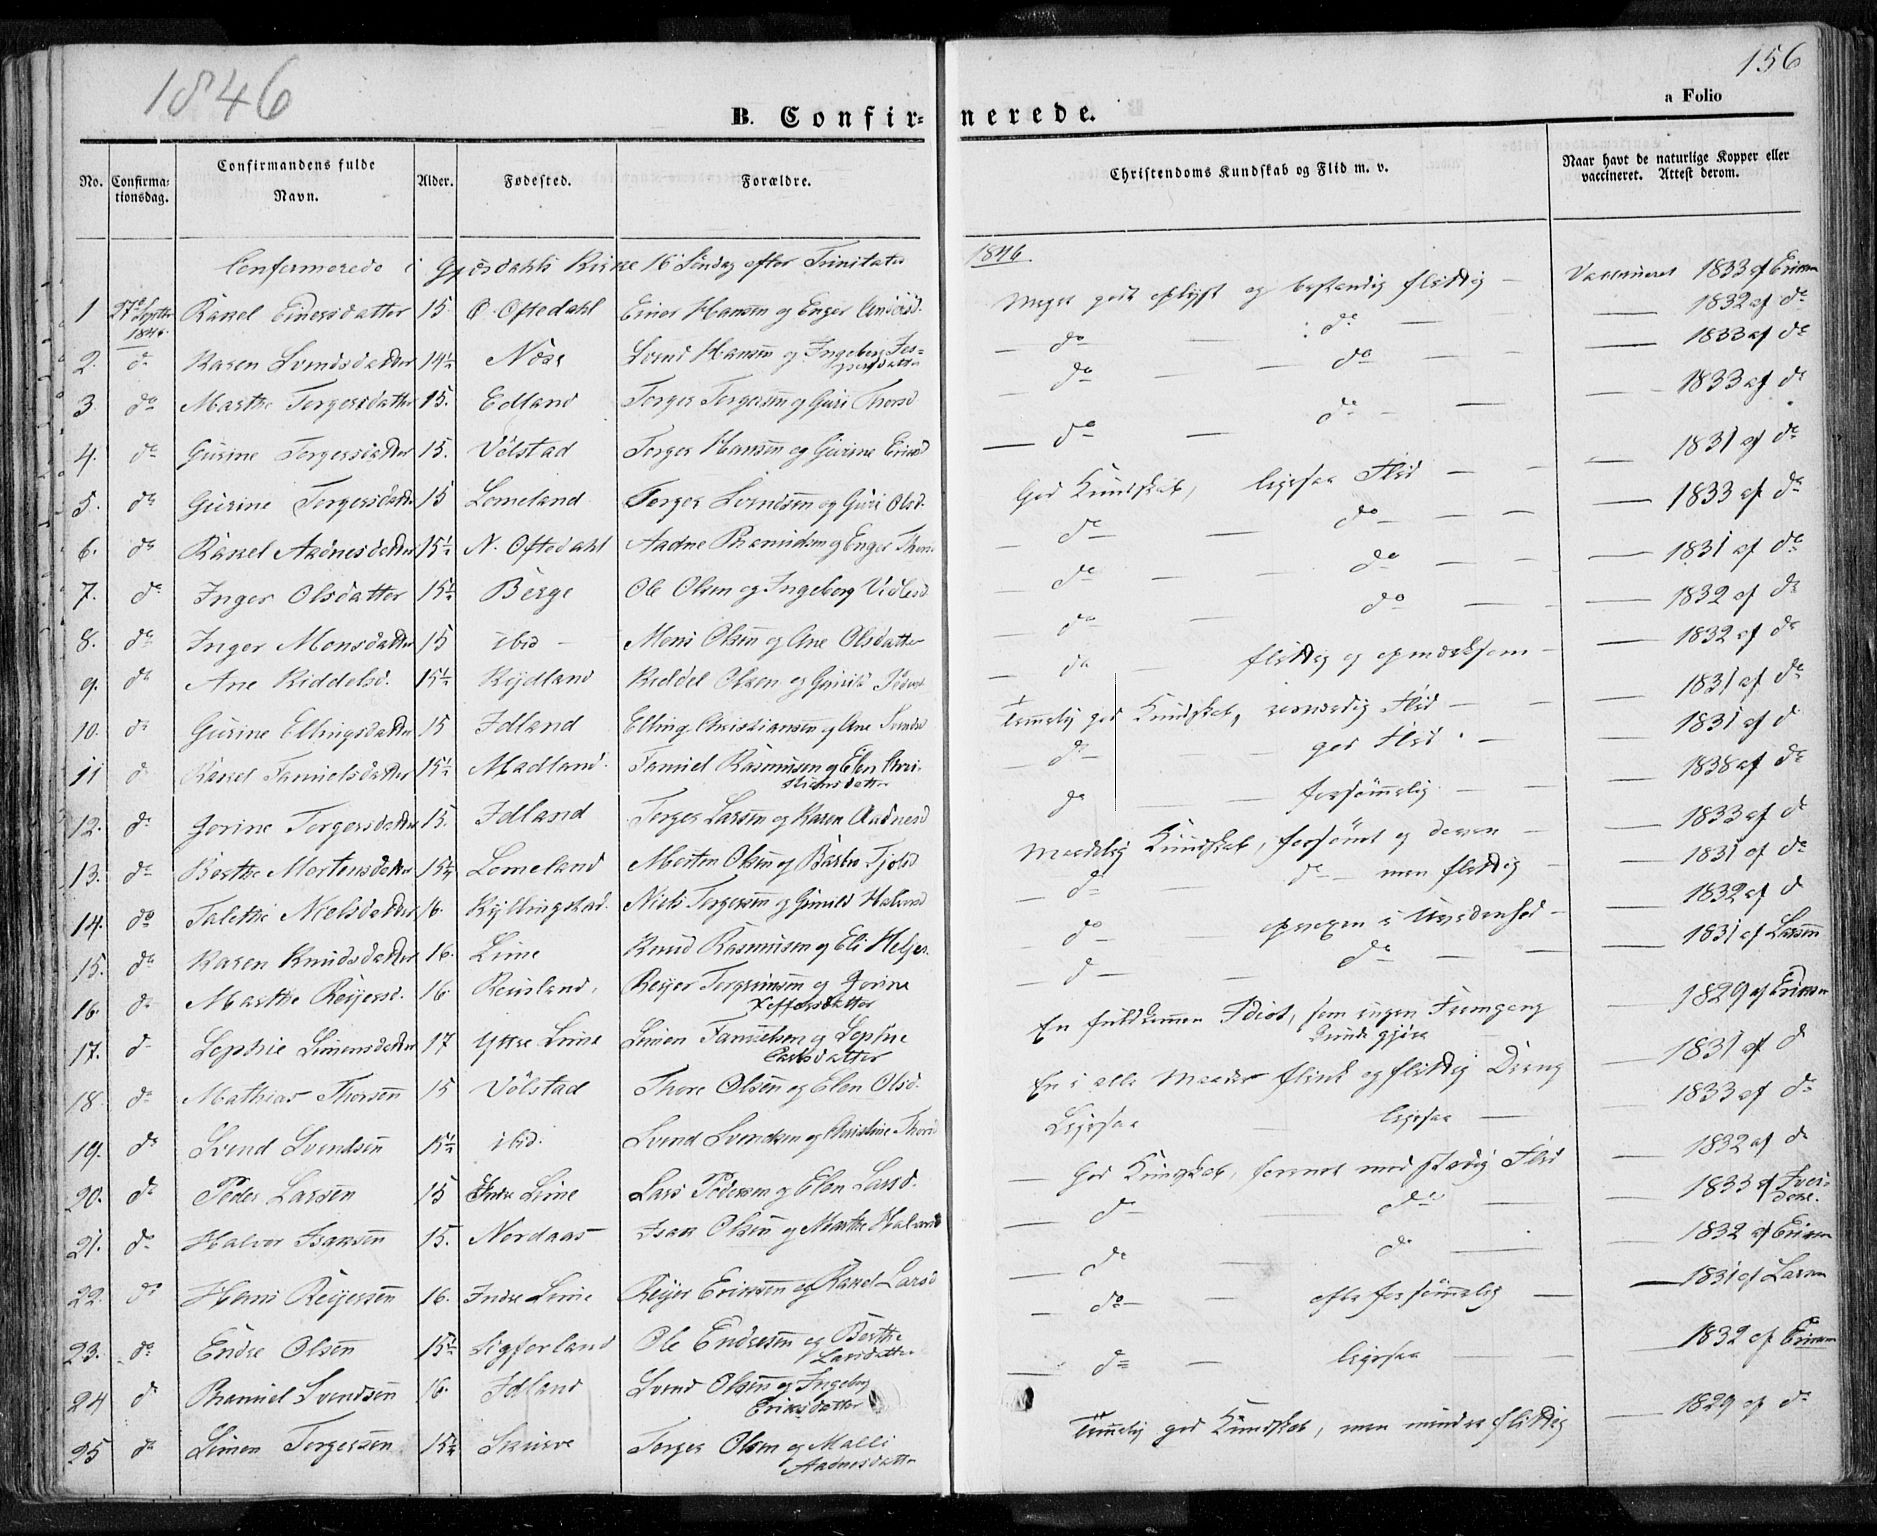 1846
156
a Folio
B. Confirmerede.
No. Confirmationsdag. Confirmandens fulde Navn. Alder. Fødested. Forældre. Christendoms Kundskab og Flid m. v. Naar havt de naturlige Kopper eller vaccineret. Attest derom.
Confirmerede i Gjesdahls Kirke 16 Søndag efter Trinitatis 1846.
1 27de Septbr 1846. Rakel Einersdatter 15. O. Oftedahl Einer Hansen og Enger Meget godt oplyst og bestandig flittig Vaccineret 1833 af Ericsen
2. do Karen Svendsdatter 14½ Næse Svend Hansen og Ingeborg Jespersdatter do do 1832 af do
3. do Marthe Torgersdatter 15. Edland Torger Torgersen og Guri Thorsd do do 1833 af do
4. do Gurine Torgersdatter 15. Vølstad Torger Hansen og Gurine Ericsd do do 1833 af do
5. do Gurine Torgersdatter 15 Lomeland Torger Svendsen og Guri Olsd. God Kundskab, ligesaa Flid 1831 af do
6. do Rakel Aadnesdatter 15½ N. Oftedahl Aadne Thamiesen og Enger Thorsd do do 1833 af do
7. do Inger Olsdatter 15½ Berge Ole Olsen og Ingeborg do do 1831 af do
8. do Inger Monsdatter 15 ibid Mons Olsen og Ane Olsdatter do do 1832 af do
9. do Ane Kiddelsd. 15½ Kydland Kiddel Olsen og Gunild Pedersd do flittig og opmærksom 1832 af do
10. do Gurine Ellingsdatter 15 Idland Elling Christiansen og Ane Svendsd Temmelig god Kundskab, Flid 1831 af do
11 do Rakel Tamielsdatter 15½ Madland. Tamiel Rasmusen og Elen Christiensdatter do god Flid 1831 af d
12. do Gorine Torgersdatter 15. Idland Torger Larsen og Karen Aadnesd do forsømmelig 1838 af do
13. do Berthe Mortensdatter 15¼ Lomeland Morten Olsen og Barbra Maadelig Kundskab, forsømt og doven 1833 af d
14. do Talethe Nielsdatter 16. Kyllingstad. Niels Torgersen og Gunild Halvord do do men flittig 1831 af do
15. do Karen Knudsdatter 16. Lime Knud Rasmusen og Eli Helje. do opvoxen i Uvidenhed 1832 af d
16. do Marthe Reijersd. 16. Reinsland. Reijer Torgrimsen og Gorine Tostensdatter d do 1831 af Larsen
17. d Sophie Simonsdatter 17 Yttre Lime Simon Tamielsen og Sophie Larsdatter En fuldkommen Idiot, som ingen Fremgang kunde gjøre 1829 af Ericsen
18. do Mathias Thorsen 15 Vølstad Thore Olsen og Elen Olsd. En i alle Maader flink og flittig Dreng 1831 af d
19. do Svend Svendsen 15½ ibid. Svend Svendsen og Christine Thorsd Ligesaa ligesaa 1833 af do
20. do Peder Larsen 15 Indre Lime Lars Pedersen og Elen Larsd. God Kundskab, forenet med stadig Flid 1832 af do
21. do Halvor Isaksen 15. Nordaas Isaac Olsen og Marthe Halvord do do 1833 af
22. do Hans Reijersen 16. Indre Lime Reijer Ericksen og Rakel Larsd do do 1832 af Ericsen
23. do Endre Olsen 15½ Ligferland Ole Endresen og Berthe Larsdatter do ofte forsømmelig 1831 af Larsen
24 d Thamiel Svendsen 16. Idland Svend Olsen og Ingeborg Eriksdatter do ligesaa 1832 af Ericsen
25 do Simon Torgersen 15¼ Skurve Torger Olsen og Malli Aadnesdatter Temmelig god Kundskab, men mindre flittig 1829 af do